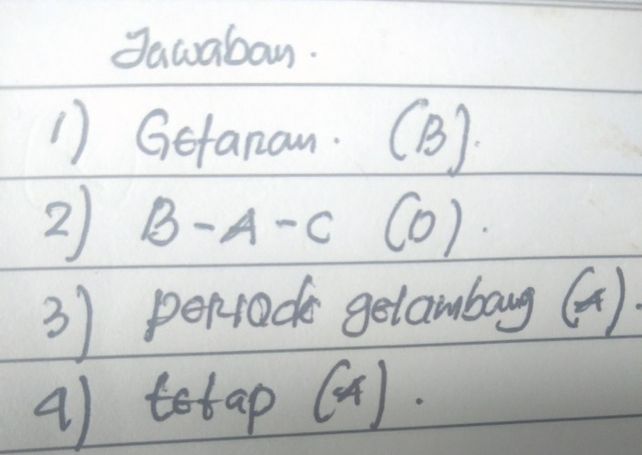 Jawaban.
1) Getaran. (B).
2) B-A-C (D).
3) periode gelambang (A).
4) tetap (A).